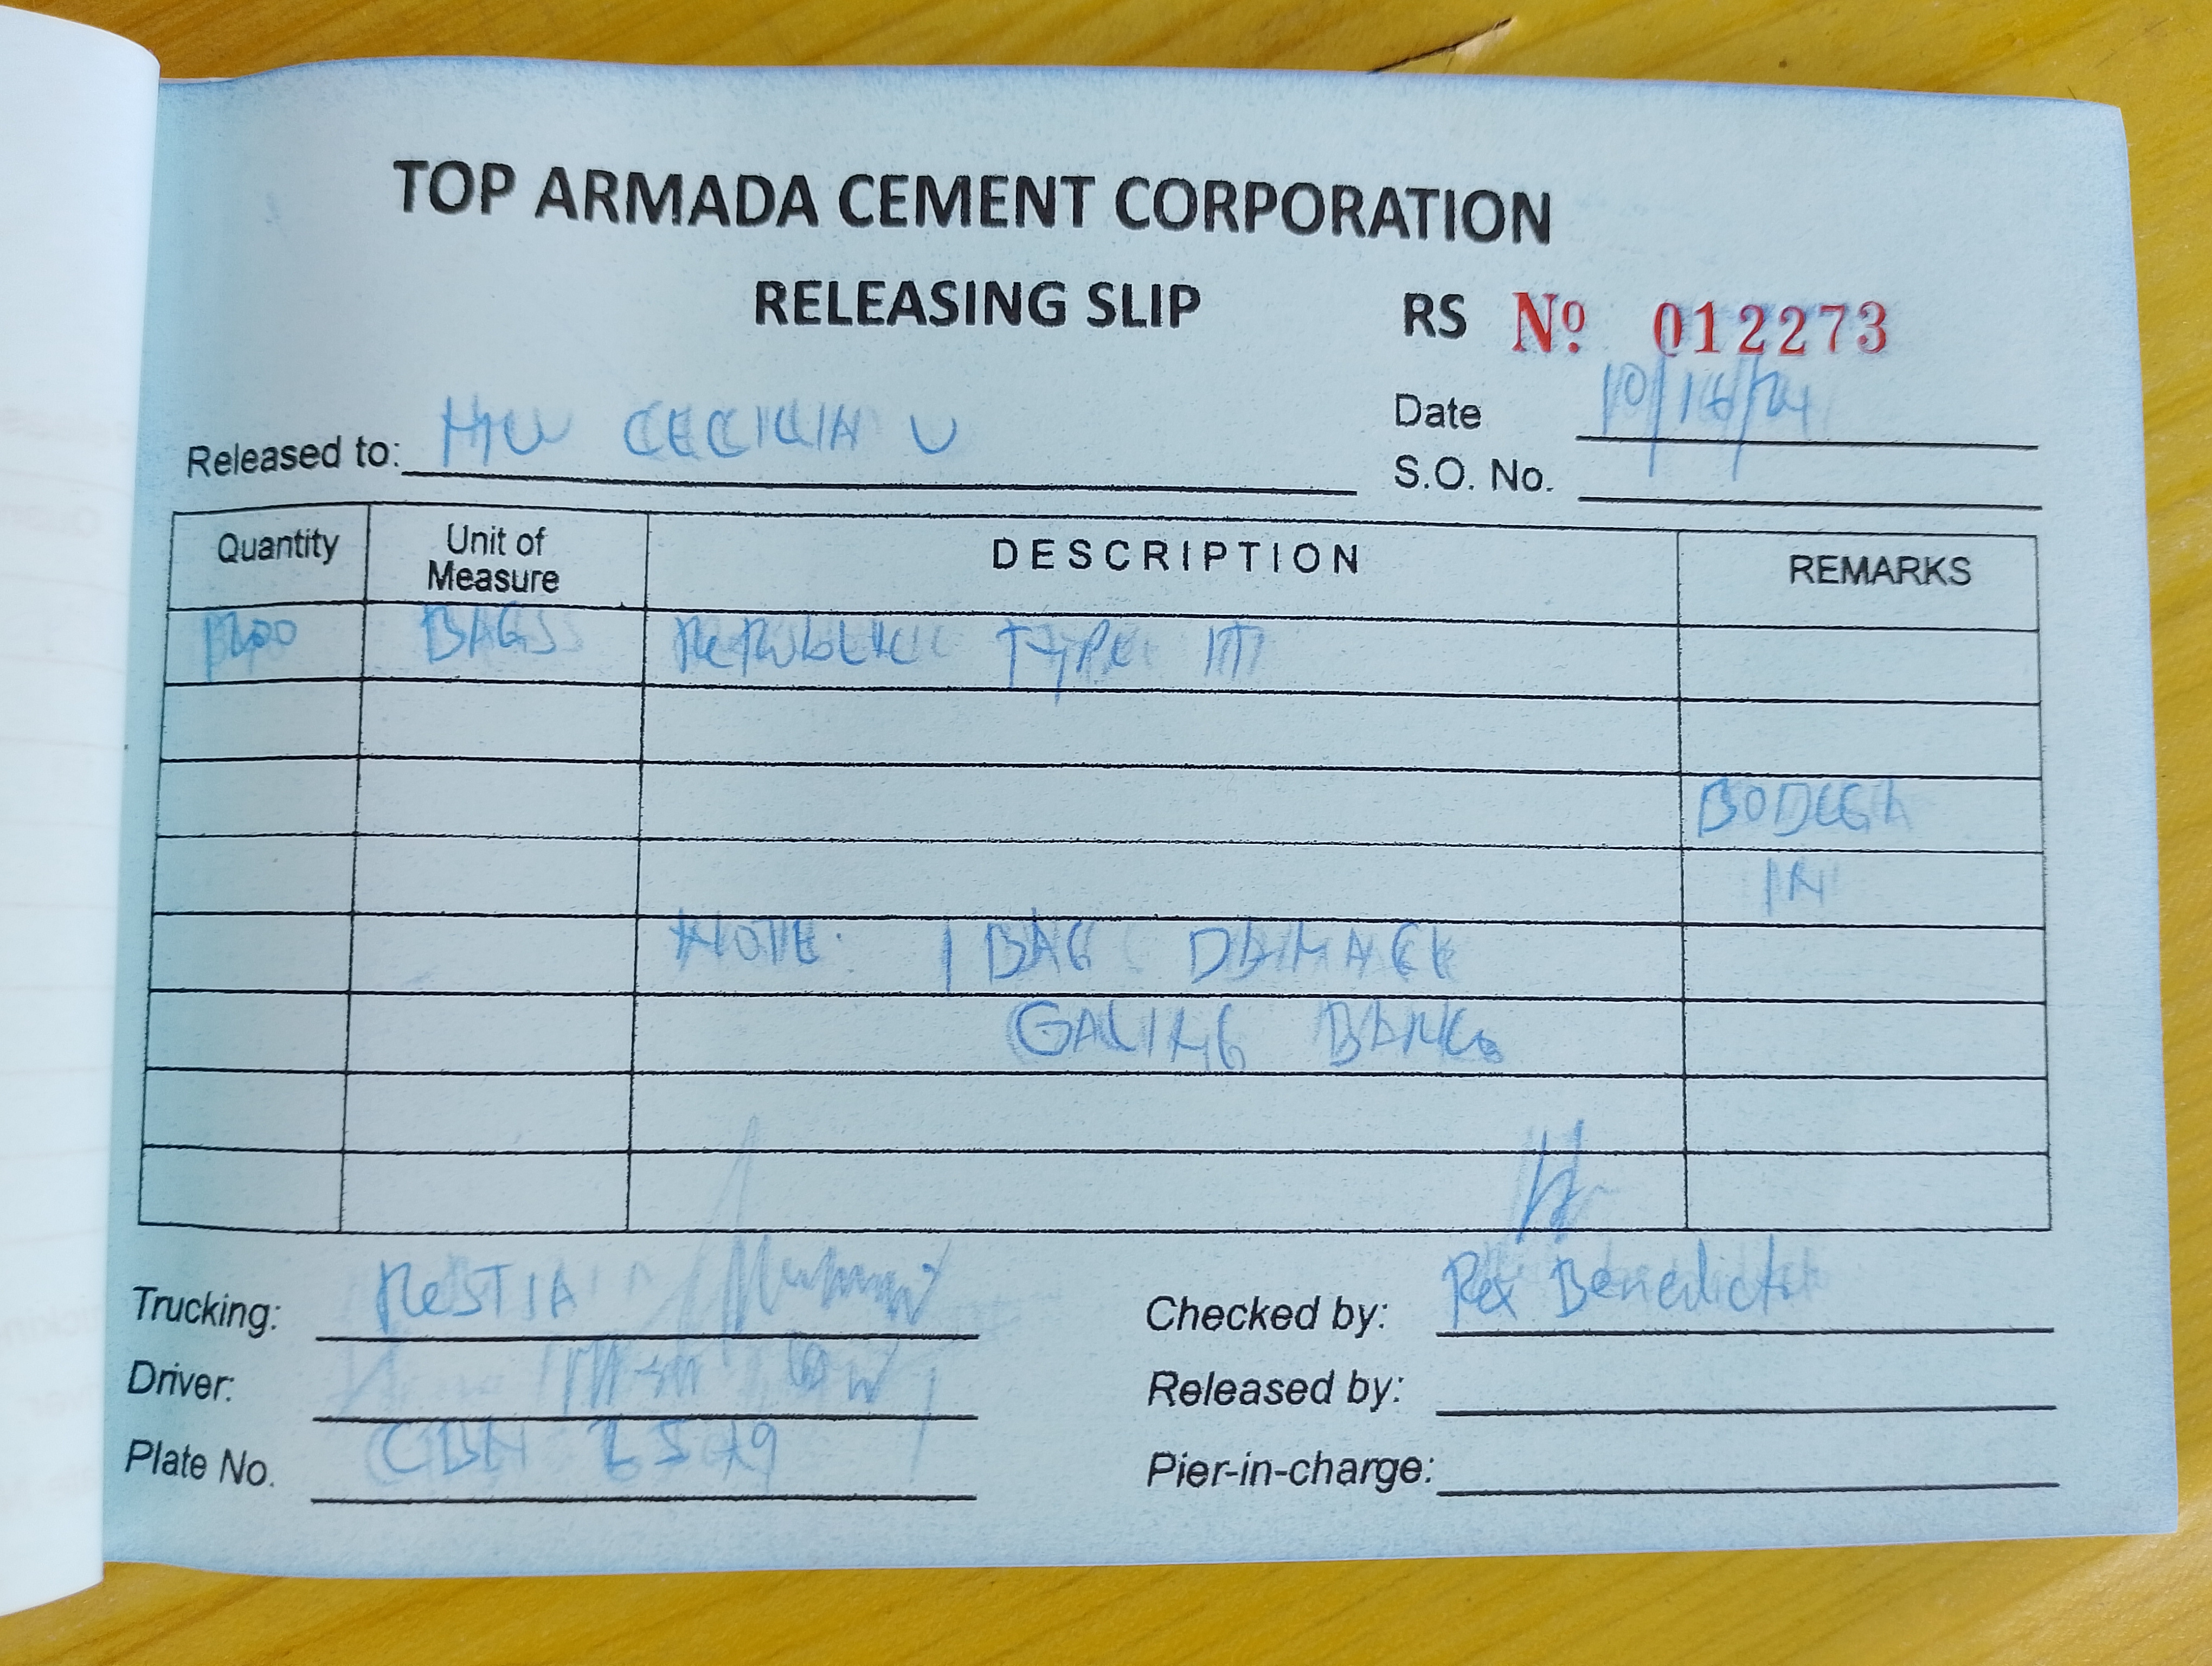 TOP ARMADA CEMENT CORPORATION
RELEASING SLIP RS Nº 012273
Date 10/16/24
Released to: CECILIA
S.O. No.
Quantity Unit of Measure DESCRIPTION REMARKS
BAGS REPUBLIC TYPE
BODEGA
IN
NOTE: 1 BAG DAMAGE
GALING
Trucking: RESTIA Checked by: Rex Benedict
Driver: Released by:
Plate No. Pier-in-charge: